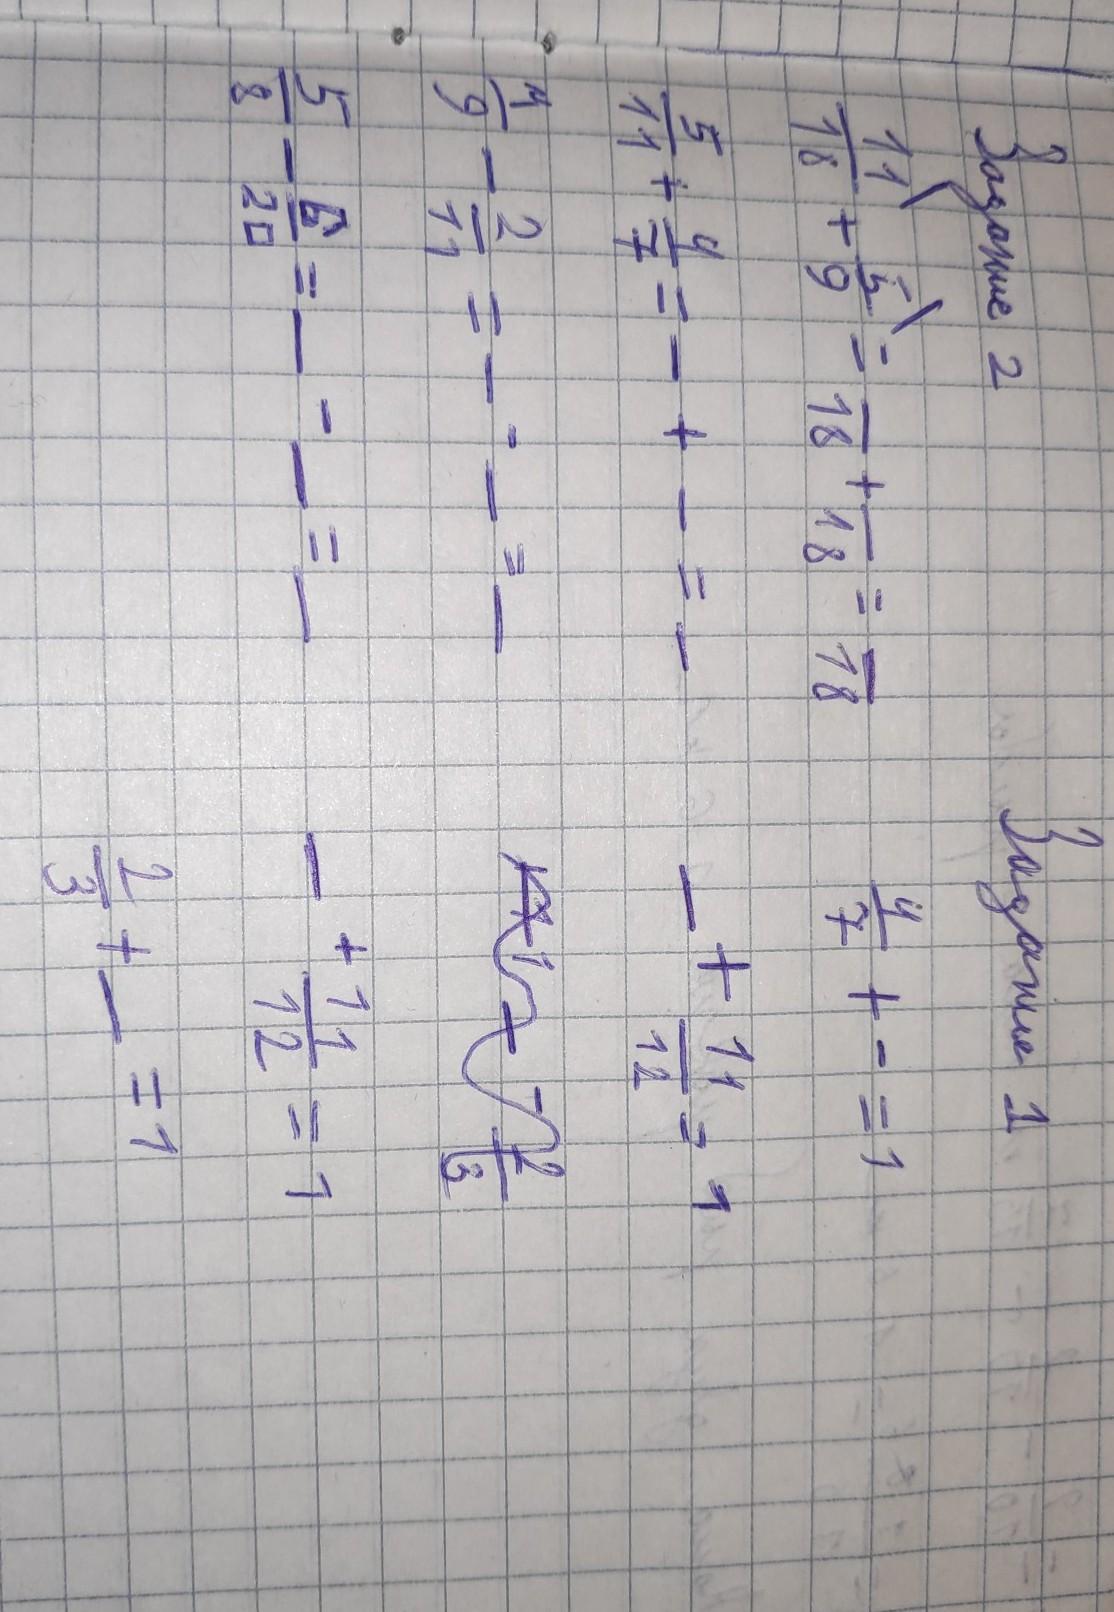 Задание 2
11/18 + 5/9 = —/18 + —/18 = —/18
5/11 + 4/7 = — + — = —
4/9 - 2/11 = — - — = —
5/8 - 6/20 = — - — = —
Задание 1
4/7 + — = 1
— + 11/12 = 1
— + 11/12 = 1
2/3 + — = 1